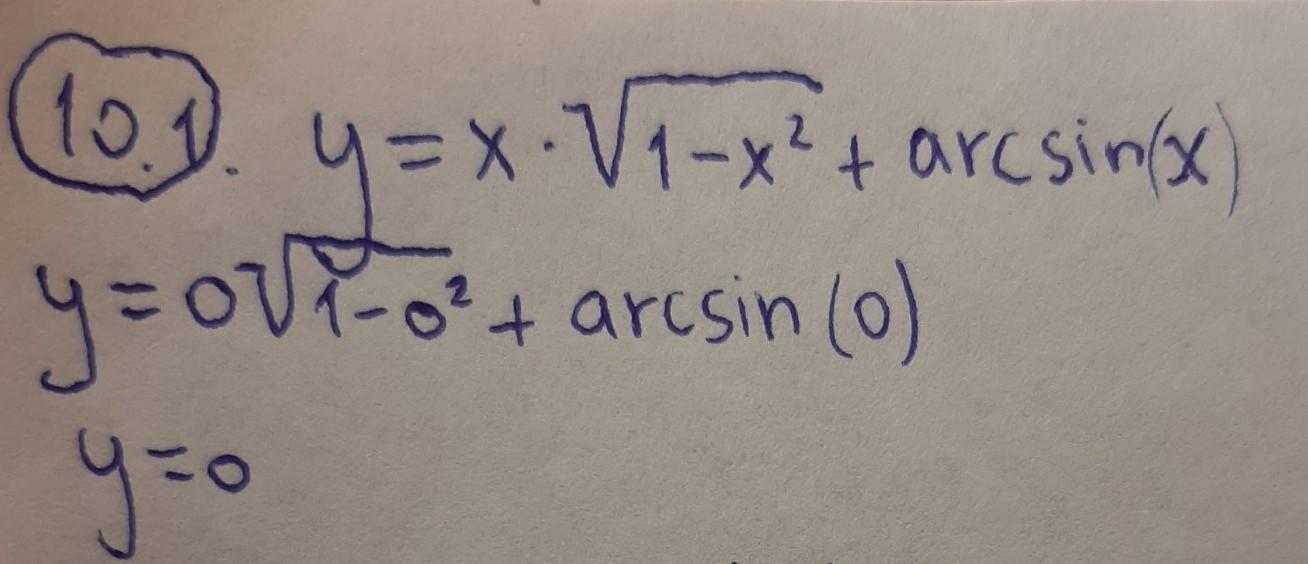 10.1. y = x · √1-x² + arcsin(x)
y = 0√1-0² + arcsin (0)
y = 0